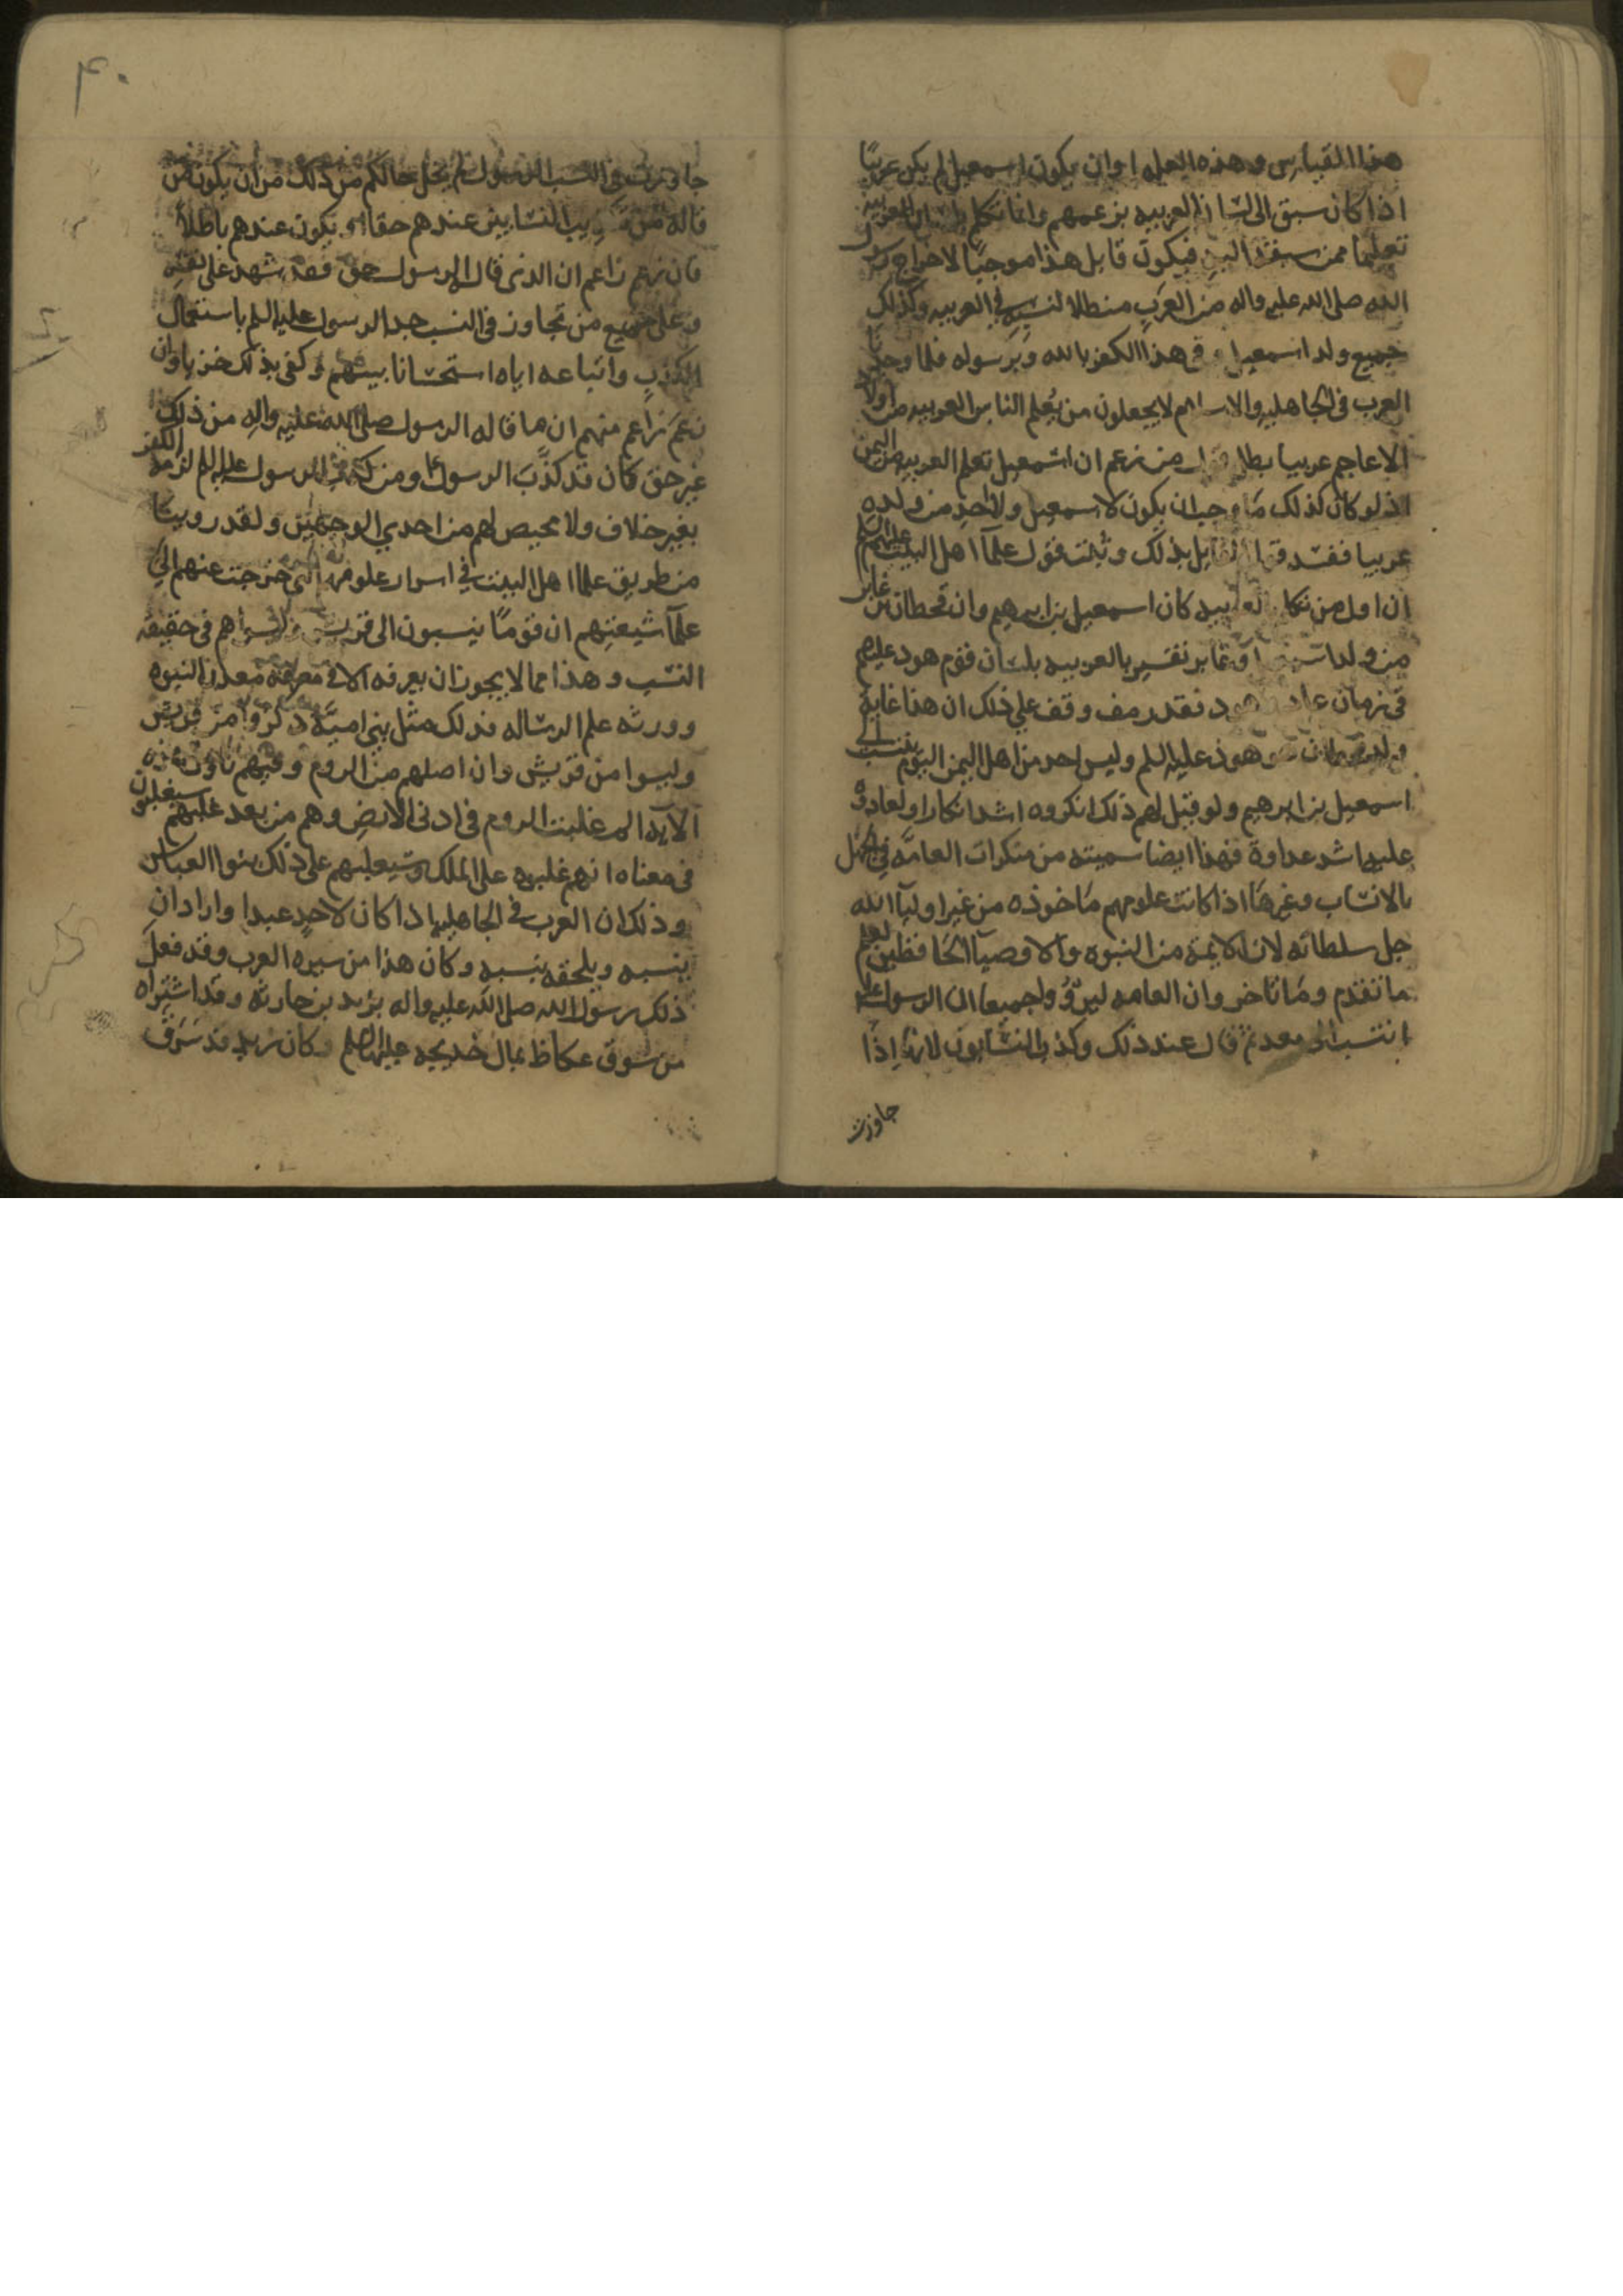 هذا القياس وهذه العله اوان يكون اسمعيل لم يكن عربيًا
اذا كان سبق الى لسان العربيه بزعمهم وانما تكلم بلسان العربيه
تعليما ممن سبقه اليه فيكون قايل هذا موجبًا لاخراج رسول
الله صلى الله عليه واله من العرب مبطلا لنسبه في العربيه وكذلك
جميع ولد اسمعيل وفي هذا الكفر بالله وبرسوله فلما وجدنا
العرب في الجاهليه والاسلام لا يجعلون من يعلم الناس العربيه من اولاد
الاعاجم عربيا بطل قول من زعم ان اسمعيل تعلم العربيه من اليمن
اذ لو كان كذلك ما وجب ان يكون لاسمعيل ولا لاحد من ولده
عربيا ففسد قول القايل بذلك وثبت قول علمآ اهل البيت عليهم السلم
ان اول من تكلم بالعربيه كان اسمعيل بن ابرهيم وان قحطان بن عابر
من ولد عابر تفسير بالعربيه بلسان قوم هود عليهم
في زمان عاد هود فقد رمف وقف على ذلك ان هذا غاية
هوذ عليه السلم وليس احد من اهل اليمن اليوم ينتسب الى
اسمعيل بن ابرهيم ولو قيل لهم ذلك انكروه اشد انكارا ولعادوه
عليه اشد عداوة فهذا ايضا سميته من منكرات العامه في الجهل
بالانساب وغيرها اذا كانت علومهم مأخوذه من غير اوليآ الله
جل سلطانه لان الايمة من النبوه والاوصيآ الحافظين لعلم
ما تقدم وما تاخر وان العامه ليروُوا جميعا ان الرسول عليه
انتسب الى معد ثم قال عند ذلك وكذب النسابون لانها اذا
جاوزت
٤٠
جاوزت في النسب الرسول لم يخل حالكم من ذلك من ان يكون
قاله من تكذيب النسابين عندهم حقا او يكون عندهم باطلا
فان زعم زاعم ان الذى قال الرسول حق فقد شهد على نفسه
وعلى جميع من تجاوز في النسب حد الرسول عليه السلم باستعمال
الكذب واتباعه اياه استحسانا بينهم وكفى بذلك خزيا وان
زعم زاعم منهم ان ما قاله الرسول صلى الله عليه واله من ذلك
غير حق كان قد كذب الرسول ومن كذب الرسول عليه السلم لزمه الكفر
بغير خلاف ولا محيص لهم من احدي الوجهين ولقد روينا
من طريق علما اهل البيت في اسرار علومهم التي خرجت عنهم الى
علمآ شيعتهم ان قومًا ينسبون الى قريش وليسوا هم في حقيقة
النسب وهذا مما لا يجوز ان يعرفه الا في معرفته معدن النبوه
وورثه علم الرساله فذلك مثل بني اميّة ذكروا من قريش
وليسوا من قريش وان اصلهم من الروم وفيهم تاويل هذه
الآيه الم غلبت الروم في ادنى الارض وهم من بعد غلبهم سيغلبون
في معناه انهم غلبوه على الملك وسيغلبهم على ذلك بنوا العباس
وذلك ان العرب في الجاهليه اذا كان لاحد عبد وارادان
ينسبه ويلحقه بنسبه وكان هذا من سيره العرب وقد فعل
ذلك رسول الله صلى الله عليه واله بزيد بن حارثه وقد اشتراه
من سوق عكاظ بمال خديجه عليها السلم وكان زيد قد سرق